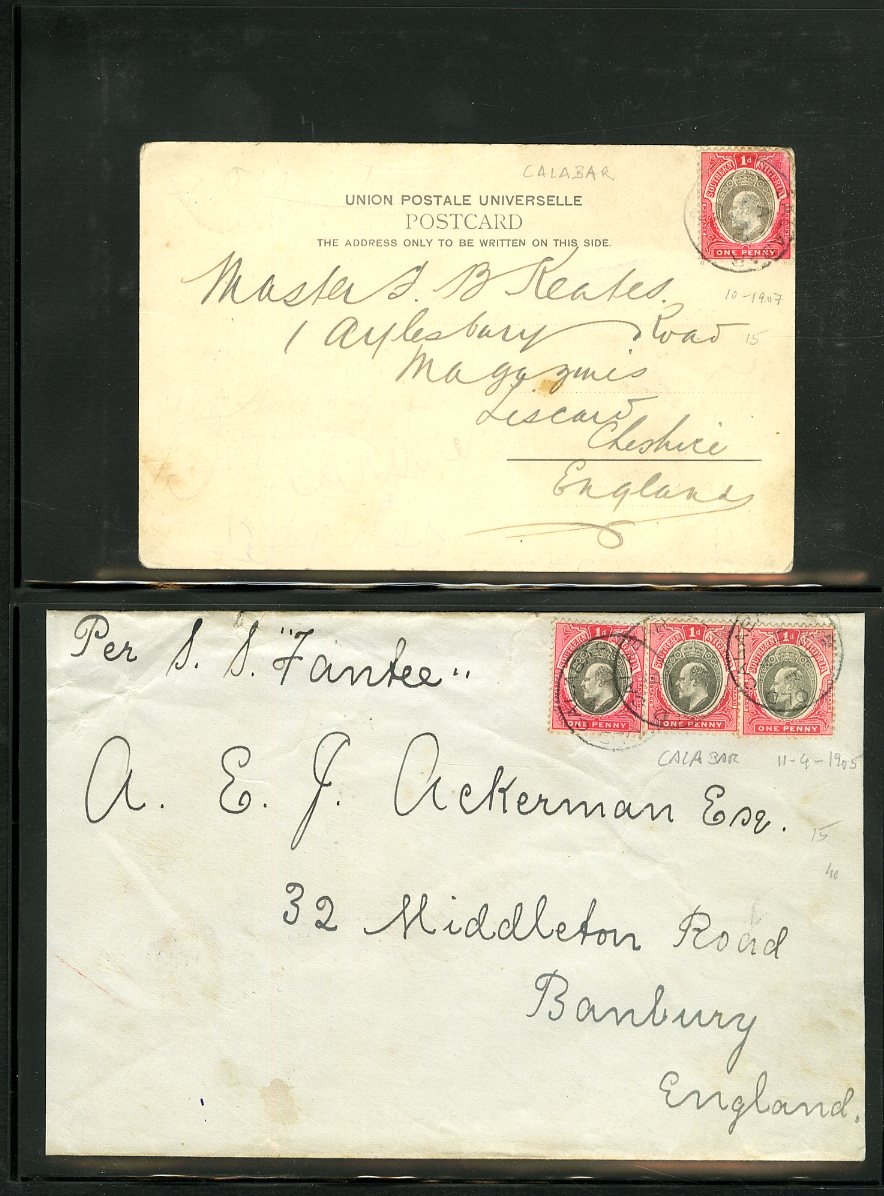 CALABAR
UNION POSTALE UNIVERSELLE
POSTCARD
THE ADDRESS ONLY TO BE WRITTEN ON THIS SIDE.
1d
SOUTHERN NIGERIA
ONE PENNY
Master J. B Keates.
10-1907
1 Aylesbury Road
15
Magazines
Liscard
Cheshire
England
Per S. S. "Fantee"
1d
SOUTHERN NIGERIA
ONE PENNY
1d
SOUTHERN NIGERIA
ONE PENNY
1d
SOUTHERN NIGERIA
ONE PENNY
CALABAR 11-4-1905
A. E. J. Ackerman Esq.
15
40
32 Middleton Road
Banbury
England.